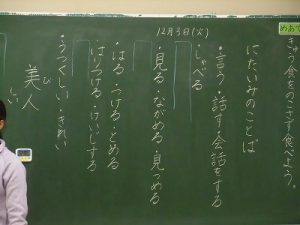 めあて
きゅう食をのこさず食べよう。
12月3日(火)
にたいみのことば
・言う・話す・会話をする
・しゃべる
・見る・ながめる・見つめる
・はる・つける・とめる
・はりつける・けいじする
・うつくしい・きれい
美人
び じん